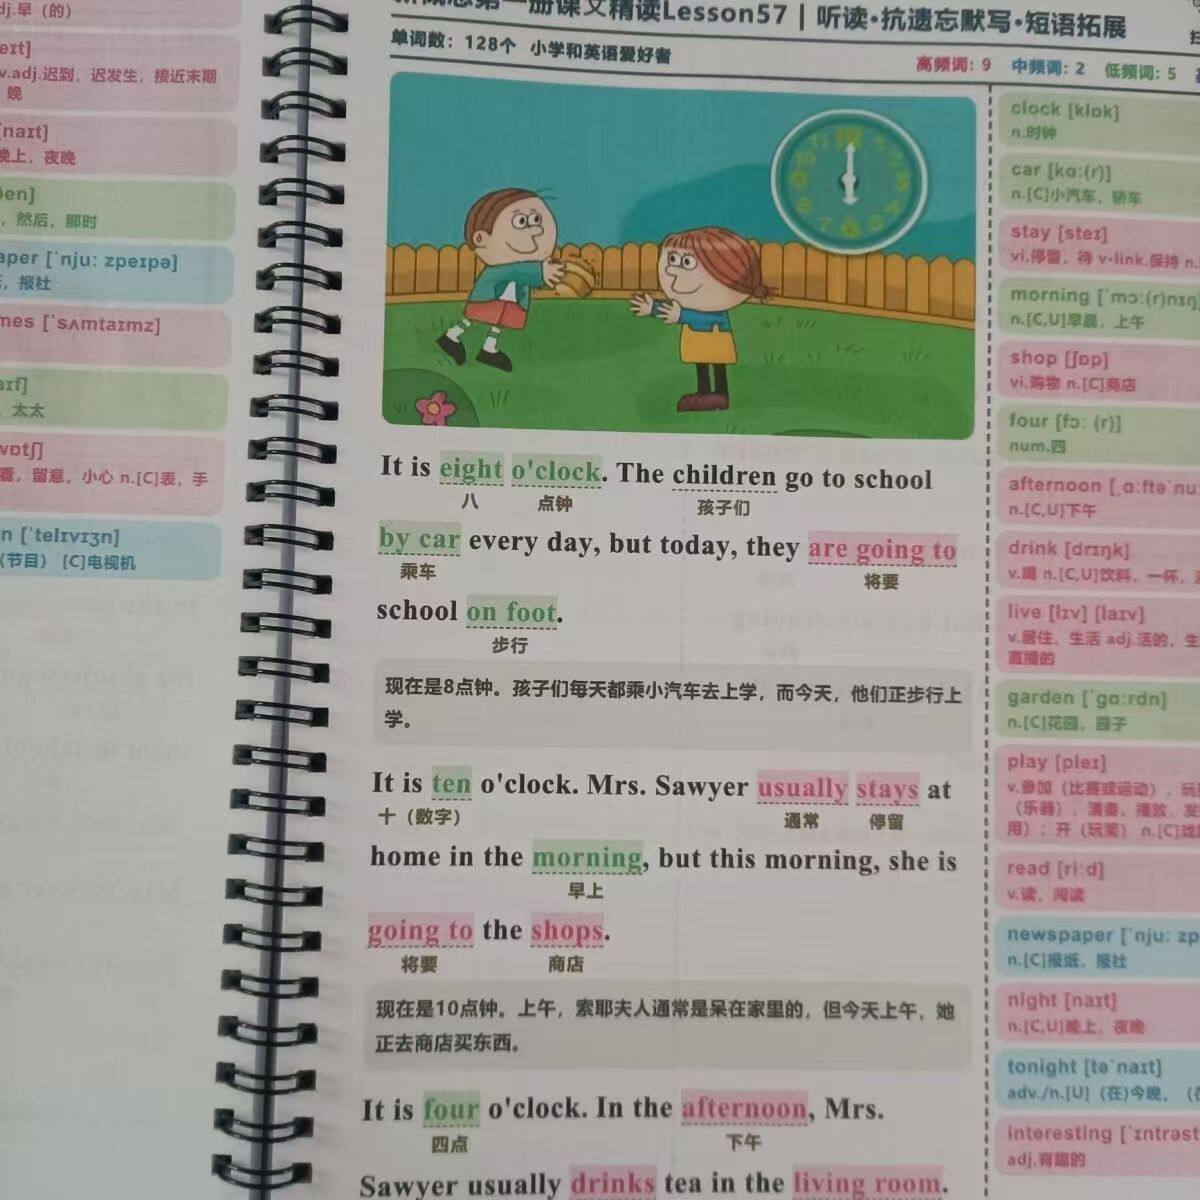 dj.早（的）
eɪt]
v.adj.迟到，迟发生，接近末期
晚
naɪt]
晚上，夜晚
ðen]
，然后，那时
aper [ˈnjuː zpeɪpə]
，报社
mes [ˈsʌmtaɪmz]
aɪf]
，太太
vɒtʃ]
看，留意，小心 n.[C]表，手
n [ˈtelɪvɪʒn]
（节目） [C]电视机
新概念第一册课文精读Lesson57 | 听读·抗遗忘默写·短语拓展
单词数：128个 小学和英语爱好者
高频词：9 中频词：2 低频词：5
It is eight o'clock. The children go to school
八 点钟 孩子们
by car every day, but today, they are going to
乘车 将要
school on foot.
步行
现在是8点钟。孩子们每天都乘小汽车去上学，而今天，他们正步行上
学。
It is ten o'clock. Mrs. Sawyer usually stays at
十（数字） 通常 停留
home in the morning, but this morning, she is
早上
going to the shops.
将要 商店
现在是10点钟。上午，索耶夫人通常是呆在家里的，但今天上午，她
正去商店买东西。
It is four o'clock. In the afternoon, Mrs.
四点 下午
Sawyer usually drinks tea in the living room.
clock [klɒk]
n.时钟
car [kɑː(r)]
n.[C]小汽车，轿车
stay [steɪ]
vi.停留，待 v-link.保持 n.
morning [ˈmɔː(r)nɪŋ]
n.[C,U]早晨，上午
shop [ʃɒp]
vi.购物 n.[C]商店
four [fɔː (r)]
num.四
afternoon [ˌɑːftəˈnuː
n.[C,U]下午
drink [drɪŋk]
v.喝 n.[C,U]饮料，一杯，
live [lɪv] [laɪv]
v.居住，生活 adj.活的，生
直播的
garden [ˈɡɑːrdn]
n.[C]花园，园子
play [pleɪ]
v.参加（比赛或运动），玩
（乐器），演奏，播放，发
用）；开（玩笑） n.[C]戏
read [riːd]
v.读，阅读
newspaper [ˈnjuː zp
n.[C]报纸，报社
night [naɪt]
n.[C,U]晚上，夜晚
tonight [təˈnaɪt]
adv./n.[U]（在)今晚，（在
interesting [ˈɪntrəst
adj.有趣的